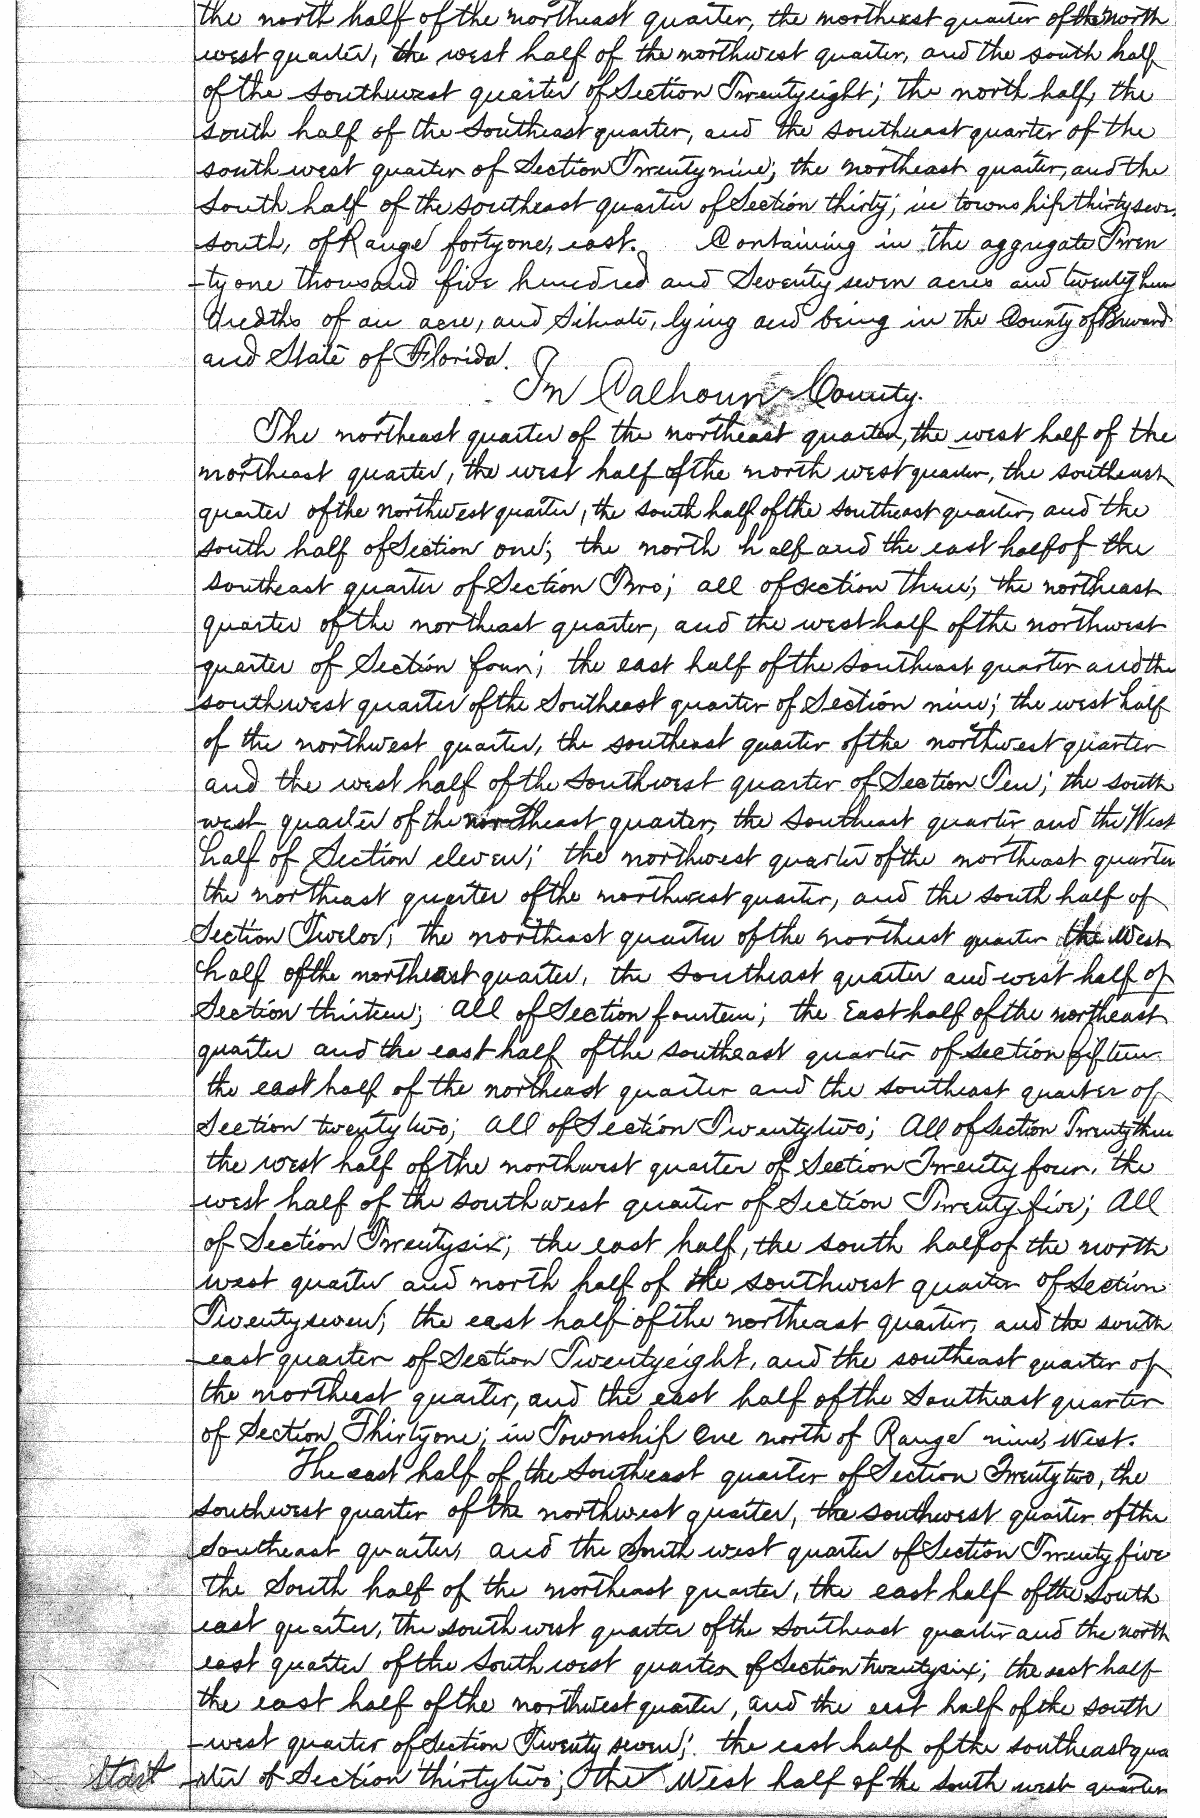 the north half of the northeast quarter, the northeast quarter of the north
west quarter, the west half of the northwest quarter, and the south half
of the southwest quarter of Section Twentyeight; the north half, the
south half of the Southeast quarter, and the southeast quarter of the
southwest quarter of Section Twentynine; the northeast quarter, and the
South half of the southeast quarter of Section thirty; in township thirty seven
south, of Range forty one, east. Containing in the aggregate Twen
-ty one thousand five hundred and Seventy seven acres and twenty hun
dredths of an acre, and Situate, lying and being in the County of Brevard
and State of Florida.
In Calhoun County.
The northeast quarter of the northeast quarter, the west half of the
northeast quarter, the west half of the north west quarter, the southeast
quarter of the northwest quarter, the south half of the southeast quarter, and the
south half of Section one; the north half and the east half of the
southeast quarter of Section Two; all of section three; the northeast
quarter of the northeast quarter, and the west half of the northwest
quarter of Section four; the east half of the Southeast quarter and the
southwest quarter of the Southeast quarter of Section nine; the west half
of the northwest quarter, the southeast quarter of the northwest quarter
and the west half of the Southwest quarter of Section Ten; the south
west quarter of the northeast quarter, the Southeast quarter and the West
half of Section eleven; the northwest quarter of the northeast quarter
the northeast quarter of the northwest quarter, and the south half of
Section Twelve; the northeast quarter of the northeast quarter the West
half of the northeast quarter, the Southeast quarter and west half of
Section thirteen; All of Section fourteen; the East half of the northeast
quarter and the east half of the southeast quarter of section fifteen
the east half of the northeast quarter and the southeast quarter of
Section twenty two; All of Section Twentytwo; All of Section Twentythree
the west half of the northwest quarter of Section Twenty four, the
west half of the southwest quarter of Section Twenty five; All
of Section Twentysix; the east half, the south half of the north
west quarter and north half of the southwest quarter of Section
Twentyseven; the east half of the northeast quarter, and the south
east quarter of Section Twentyeight, and the southeast quarter of
the northeast quarter, and the east half of the Southeast quarter
of Section Thirtyone; in Township One north of Range nine, West.
The east half of the Southeast quarter of Section Twentytwo, the
southwest quarter of the northwest quarter, the southwest quarter of the
Southeast quarter, and the South west quarter of Section Twenty five
the South half of the northeast quarter, the east half of the South
east quarter, the south west quarter of the Southeast quarter and the north
east quarter of the South west quarter of Section twentysix; the east half
the east half of the northwest quarter, and the east half of the south
-west quarter of Section Twenty seven; the east half of the southeast qua
start -rter of Section thirtytwo; the West half of the south west quarter